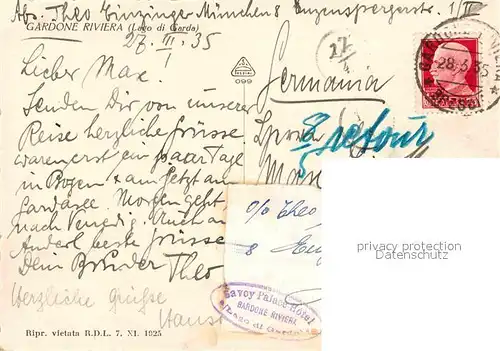 Abs. Theo Einzinger München 8 Anzengruberstr. 1/II
GARDONE RIVIERA (Lago di Garda)
27. III. 35
Lieber Max.
Senden Dir von unserer
Reise herzliche Grüsse
waren erst ein paar Tage
in Bozen & am jetzt am
Gardasee. Morgen geht
nach Venedig. Auch an
Anderl beste Grüsse
Dein Bruder Theo
Herzliche Grüße
Hansi
Ripr. vietata R.D.L. 7. XI. 1925
099
17
4
Germania
28.3.35
retour
c/o Theo
8
Savoy Palace Hotel
GARDONE RIVIERA
Lago di Garda
privacy protection
Datenschutz